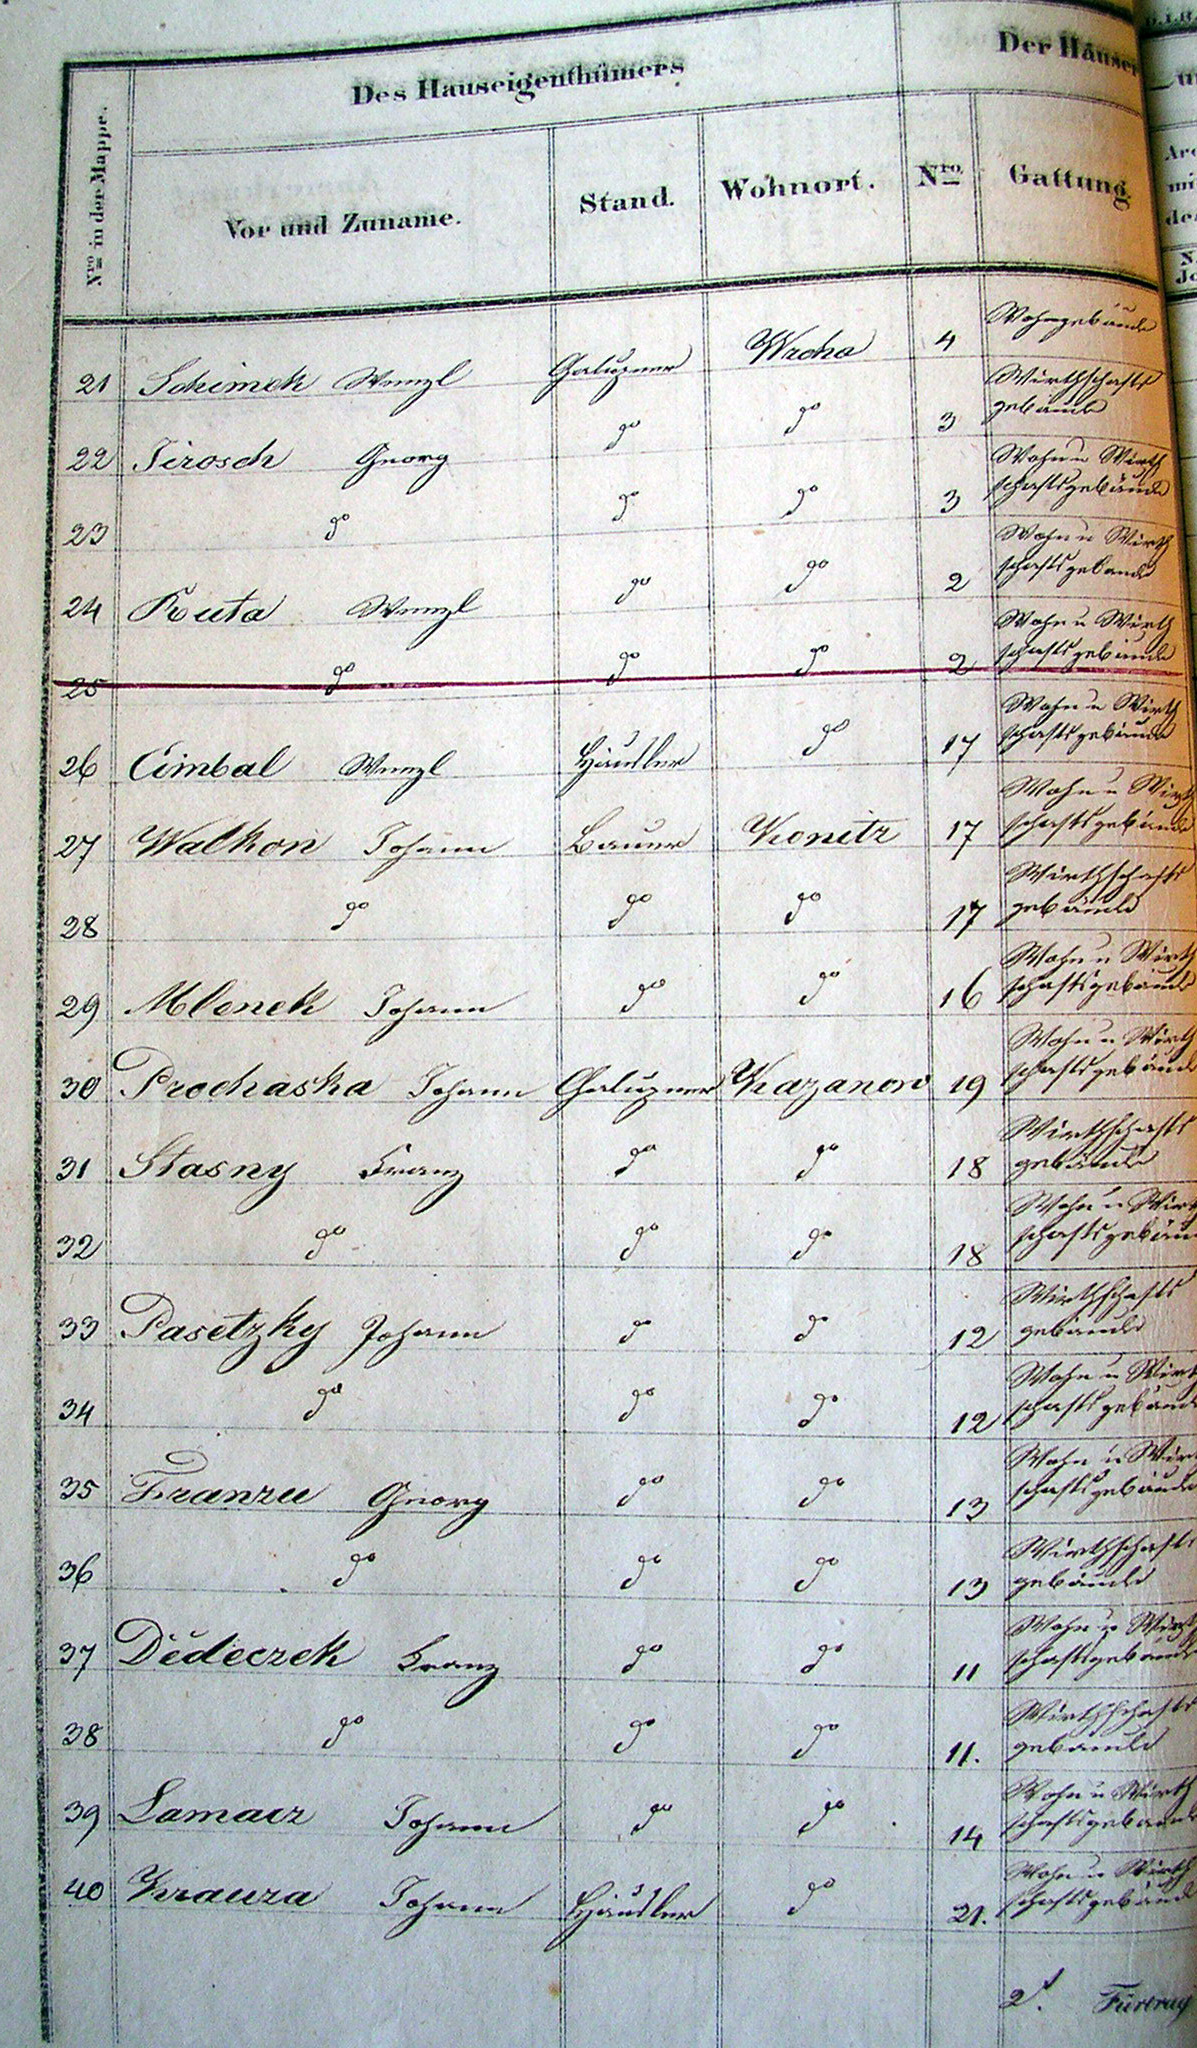 Des Hauseigenthümers
Der Häuser
Nro in der Mappe.
Vor und Zuname.
Stand.
Wohnort.
Nro
Gattung.
21 Schimek Wenzl Chaluppner Wrcha 4 Wohngebäude
22 Jirosch Georg do do 3 Wirthschafts
gebäude
23 do do do 3 Wohn u Wirth
schaftsgebäude
24 Kuta Wenzl do do 2 Wohn u Wirth
schaftsgebäude
25 do do do 2 Wohn u Wirth
schaftsgebäude
26 Cimbal Wenzl Häusler do 17 Wohn u Wirth
schaftsgebäude
27 Walkon Johann Bauer Konitz 17 Wohn u Wirth
schaftsgebäude
28 do do do 17 Wirthschafts
gebäude
29 Mlenek Johann do do 16 Wohn u Wirth
schaftsgebäude
30 Prochaska Johann Chalupner Kazanow 19 Wohn u Wirth
schaftsgebäude
31 Stasny Franz do do 18 Wirthschafts
gebäude
32 do do do 18 Wohn u Wirth
schaftsgebäu
33 Pasetzky Johann do do 12 Wirthschafts
gebäude
34 do do do 12 Wohn u Wirth
schaftsgebäude
35 Franzu Georg do do 13 Wohn u Wir
schaftsgebäude
36 do do do 13 Wirthschafts
gebäude
37 Dědeczek Franz do do 11 Wohn u Wirt
schaftsgebäude
38 do do do 11. Wirthschafts
gebäude
39 Lamacz Johann do do 14 Wohn u Wirth
schaftsgebäude
40 Krauza Johann Häusler do 21. Wohn u Wirth
schaftsgebäud
2. Fürtrag